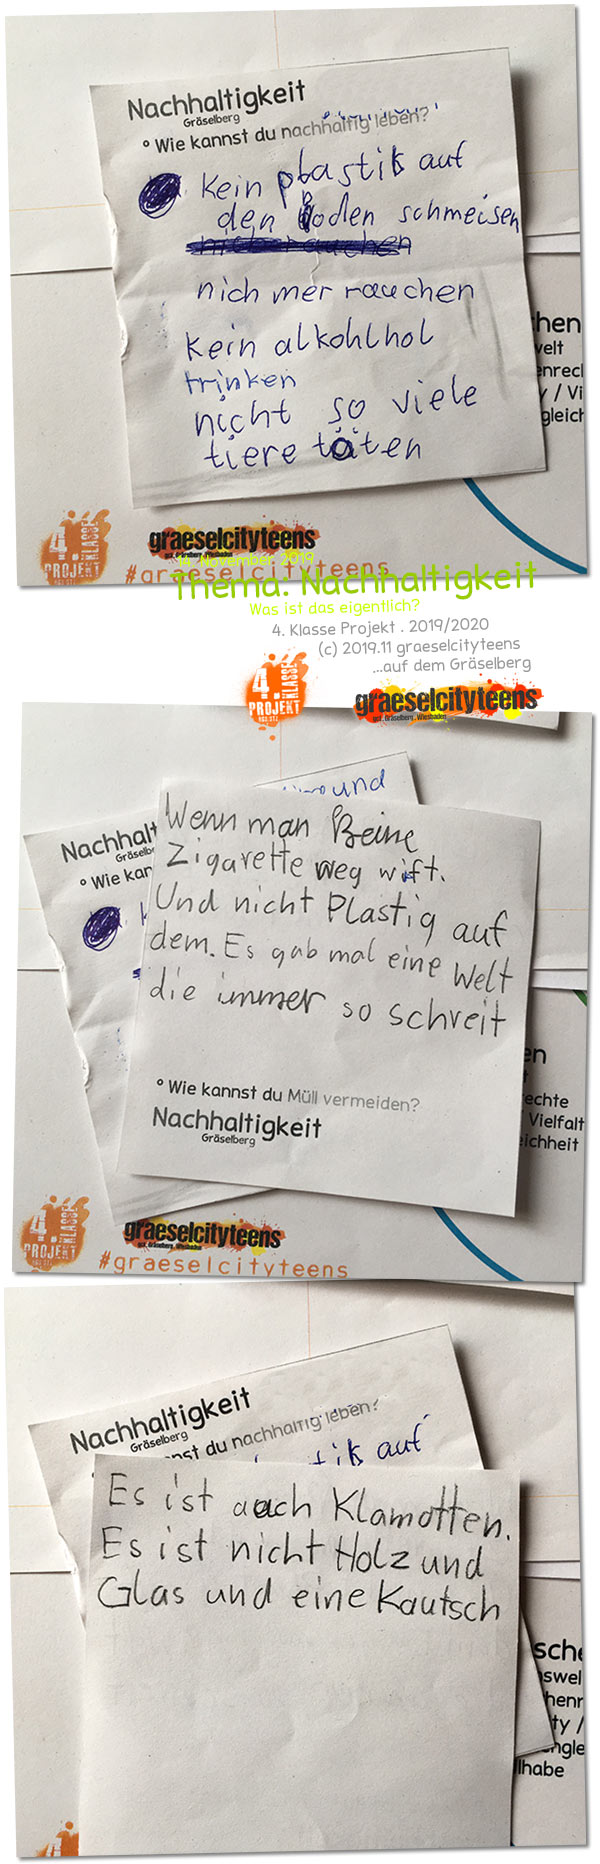 Nachhaltigkeit
Gräselberg
° Wie kannst du nachhaltig leben?
Kein plastik auf
den Boden schmeisen
nich mer rauchen
kein alkohlhol
trinken
nicht so viele
tiere töten
chen
welt
enrecl
y / Vi
gleich
4.
KLASSE
PROJEKT
graeselcityteens
gct. Gräselberg . Wiesbaden
14. November 2019
#graeselcityteens
Thema. Nachhaltigkeit
Was ist das eigentlich?
4. Klasse Projekt . 2019/2020
(c) 2019.11 graeselcityteens
...auf dem Gräselberg
4.
KLASSE
PROJEKT
graeselcityteens
gct. Gräselberg . Wiesbaden
und
Nachhalt
Gräselbe
° Wie kan
Wenn man Beine
Zigarette weg wift.
Und nicht Plastig auf
dem. Es gab mal eine Welt
die immer so schreit
° Wie kannst du Müll vermeiden?
Nachhaltigkeit
Gräselberg
en
t
echte
Vielfalt
eichheit
4.
KLASSE
PROJEKT
graeselcityteens
gct. Gräselberg . Wiesbaden
#graeselcityteens
Nachhaltigkeit
Gräselberg
nst du nachhaltig leben?
stik auf
Es ist auch Klamotten.
Es ist nicht Holz und
Glas und eine Kautsch
sche
nswel
henr
ty /
ngle
lhabe